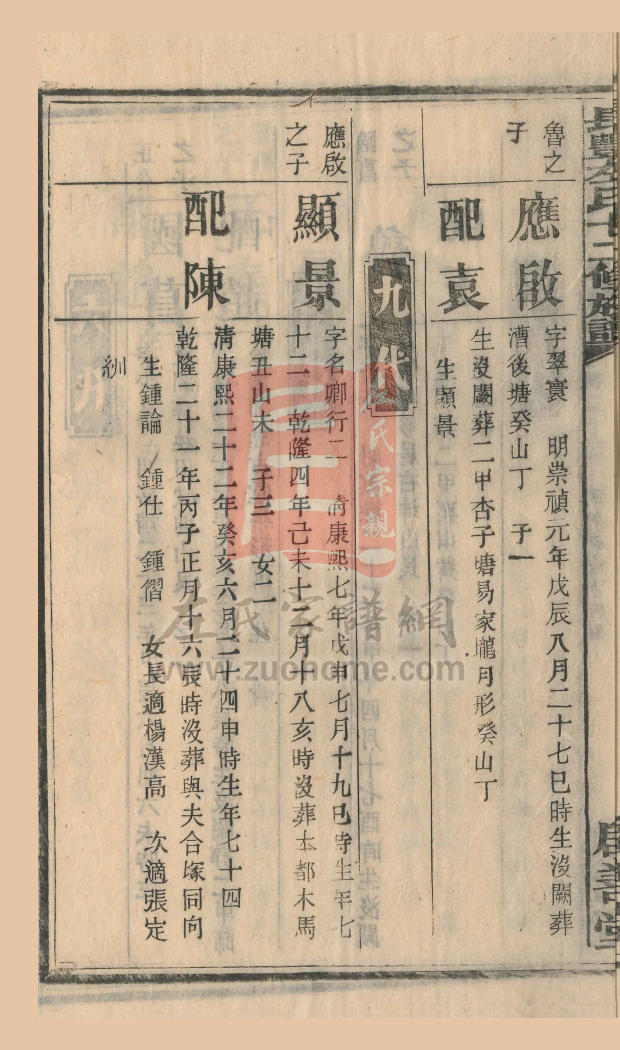 氏十二修族譜
善堂
魯之
子
應啟
字翠寰 明崇禎元年戊辰八月二十七巳時生沒闕葬
漕後塘癸山丁 子一
配袁
生沒闕葬二甲杏子塘易家壠月形癸山丁
生顯景
九代
應啟
之子
顯景
字名卿行二 清康熙七年戊申七月十九巳時生年七
十二 乾隆四年己未十二月十八亥時沒葬本都木馬
塘丑山未 子三 女二
配陳
清康熙二十二年癸亥六月二十四申時生年七十四
乾隆二十一年丙子正月十六辰時沒葬與夫合塚同向
生鍾論 鍾仕 鍾慴 女長適楊漢高 次適張定
紃
氏宗親
左氏宗譜網
www.zuohome.com